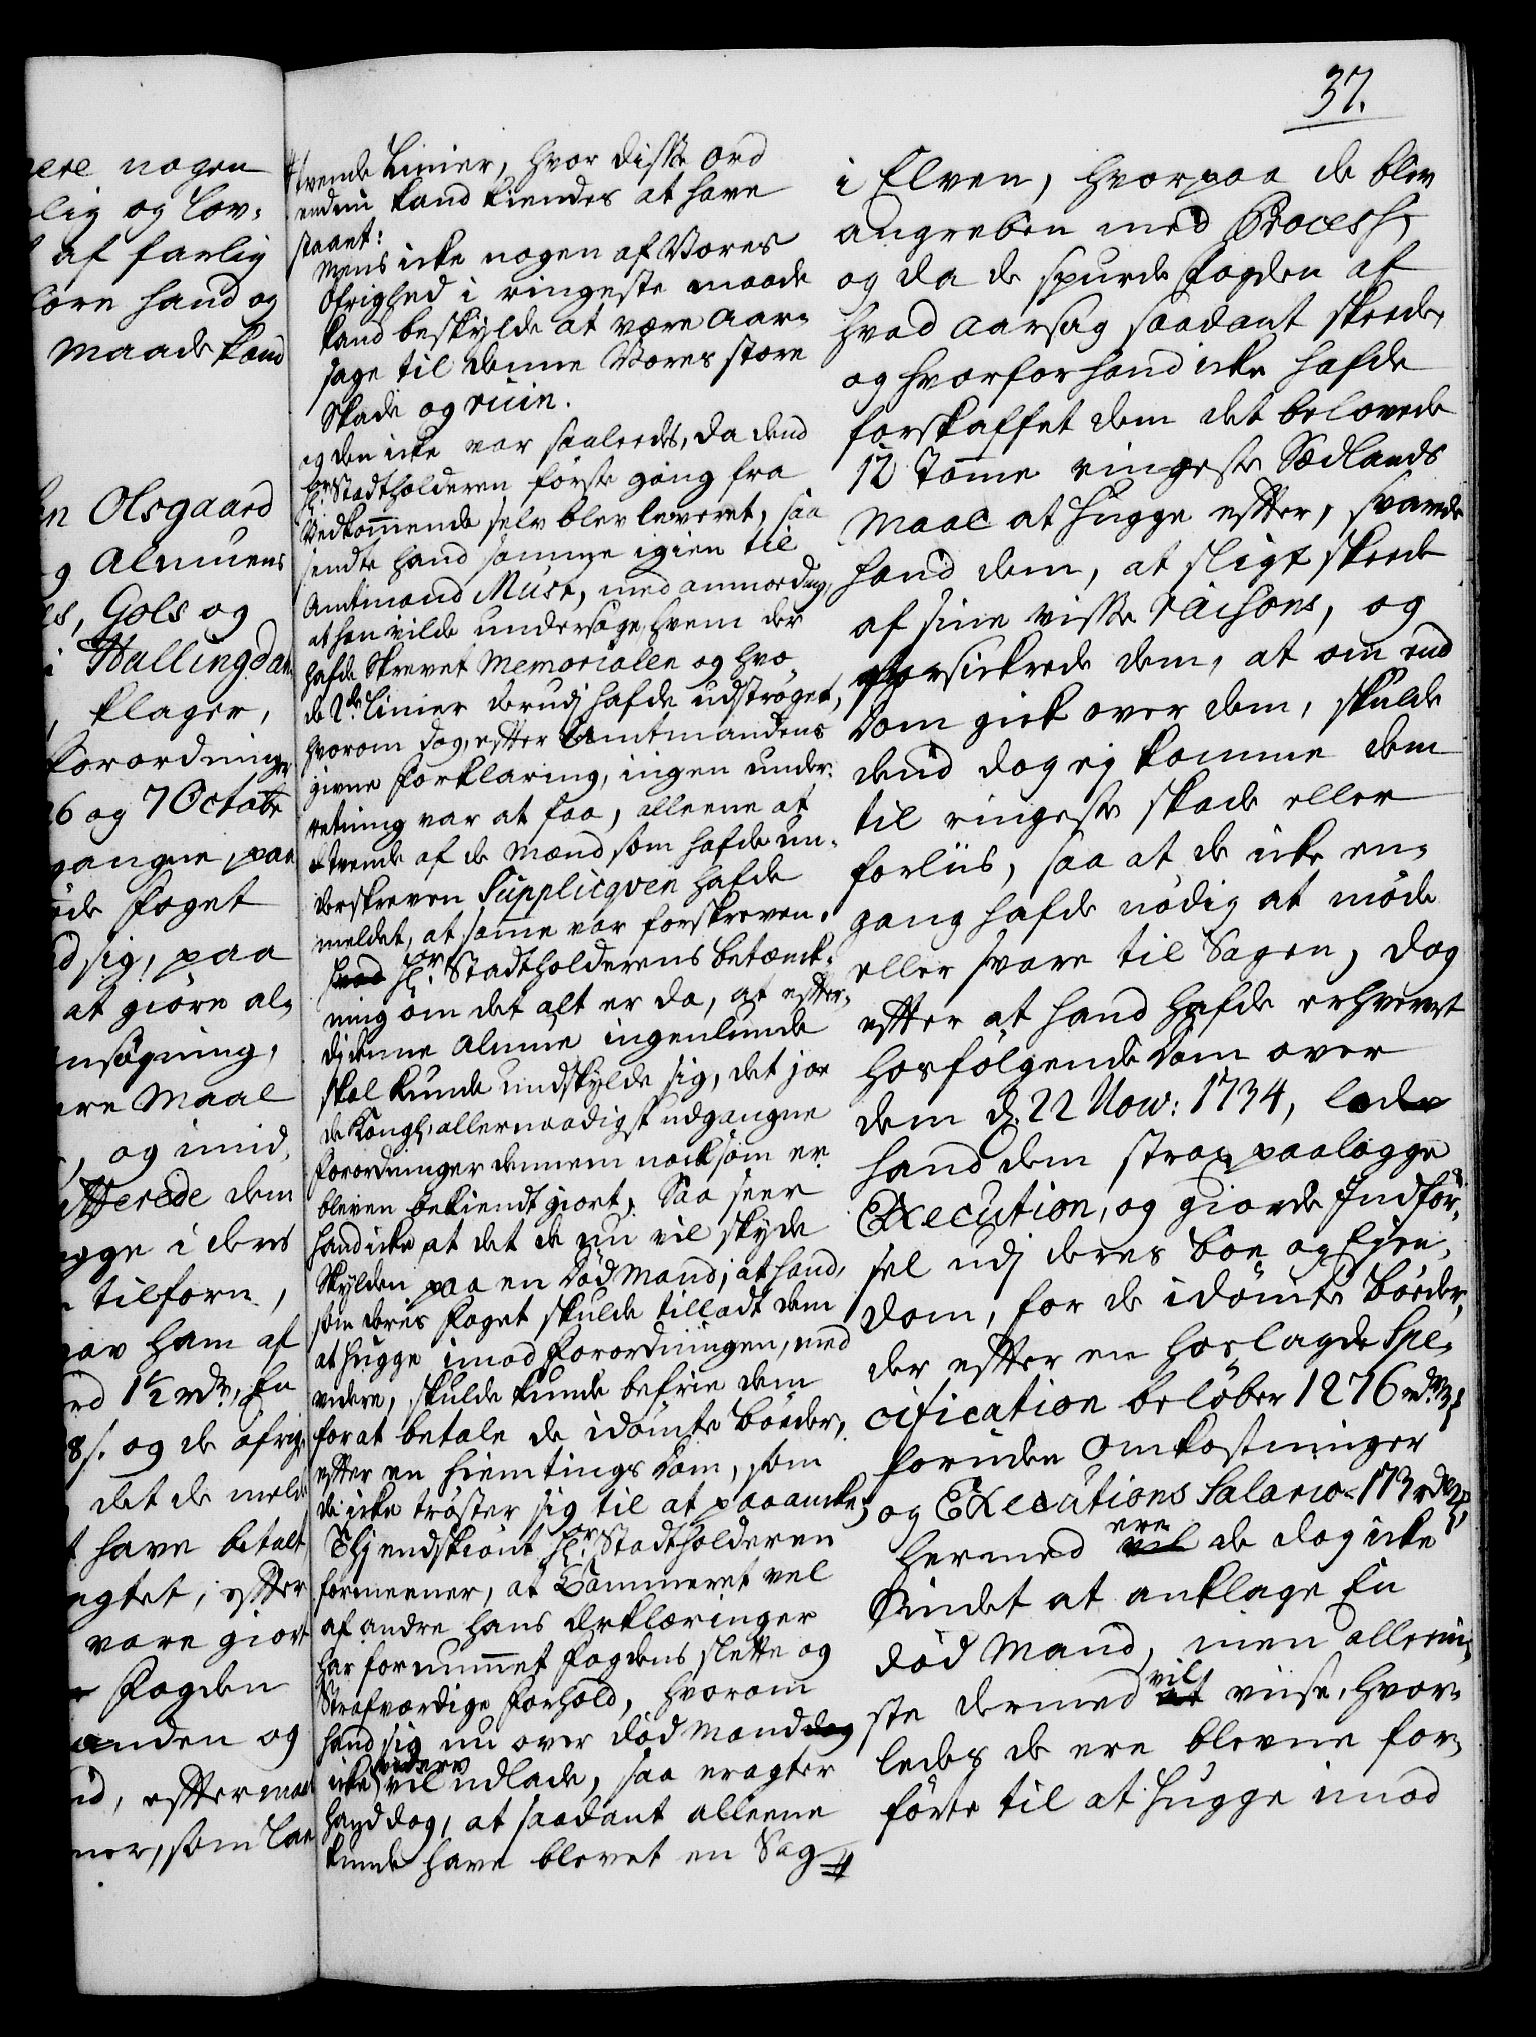 37.
ere nogen
lig og lov-
af farlig
lore hand og
maade kand
n Olsgaard
g Almuens
s, Gols og
i Hallingdal
, klager,
forordninger
26 og 7 Octobr
gangne, paa
de Foget
d sig, paa
at giöre al-
nsögning,
re Maal
, og imid-
tterede dem
gge i deres
tilforn,
av ham af
rd 1½ rdr, En
8 s. og de öfrige
det de meld
t have betalt
gtet, efter
vare giort
Fogden
anden og
d, efter ma
ner, som laa
tvende Linier, hvor disse ord
endnu kand kiendes at have
staaet:
Mens icke nogen af Vores
Öfrighed i ringeste maade
kand beskylde at være Aar-
sage til denne Vores store
Skade og ruin.
og den icke var saaledes, da dend
Hr. Stadtholderen förste gang fra
Vedkommende selv blev leveret, saa
sendte hand samme igien til
Amtmand Mûse, med anmodning,
at han vilde undersöge, hvem der
hafde skrevet Memorialen og hvo
de 2de Linier derudj hafde udströget,
hvorom dog, efter Amtmandens
givne forklaring, ingen under-
retning var at faa, alleene at
tvende af de Mænd som hafde un-
derskreven Supplicqven hafde
meldet, at samme var forskreven.
hvad Hr. Stadtholderens betænk-
ning om det alt er da, at efter-
dj denne Almue ingenlunde
skal kunde undskylde sig, det jo
de Kongl: allernaadigst udgangne
forordninger dennem nocksom er
bleven bekiendtgiort, Saa seer
hand icke at det de nu vil skyde
Skylden paa en död Mand, at hand,
som deres Foget skulde tilladt dem
at hugge imod Forordningen, med
videre, skulde kunde befrie dem
for at betale de idömte Böder,
efter en Hiemtings Dom, som
de icke tröster sig til at paaancke;
Thj endskiönt Hr. Stadtholderen
formeener, at Cammeret vel
af andre hans Erklæringer
har fornummet Fogdens slette og
Strafværdige Forhold, hvorom
hand sig nu over död Mand dog
icke videre vil udlade, saa eragter
hand dog, at saadant alleene
kunde have blevet en Sag
i Elven, hvorpaa de blev
angreben med Process,
og da de spurde Fogden af
hvad aarsag saadant skeede,
og hvorfor hand icke hafde
forskaffet dem det belovede
12 Tomme ringeste Sædlands
Maal at hugge efter, svarede
hand dem, at sligt skeede
af sine visse raisons, og
forsickrede dem, at om end
Dom gick over dem, skulde
dend dog ej komme dem
til ringeste skade eller
forliis, saa at de icke en-
gang hafde nödig at möde
eller svare til Sagen, dog
efter at hand hafde erhvervet
hosfölgende Dom over
dem d. 22 Nov: 1734, lod
hand dem strax paalægge
Execution, og giorde Indför-
sel udj deres boe og Eyen-
dom, for de idömte Böeder,
der efter en hoslagde Spe-
cification belöber 1276 rdr
foruden Omkostninger
og Executions Salario 173 rdr
hermed ere vil de dog icke
Sindet at anklage En
död Mand, men alleeni-
ste dermed vil at viise, hvor-
ledes de ere blevne for-
förte til at hugge imod